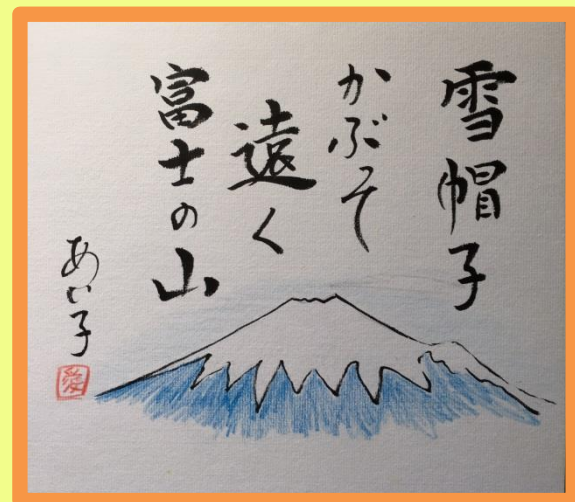 雪帽子
かぶって
遠く
富士の山
あい子
愛